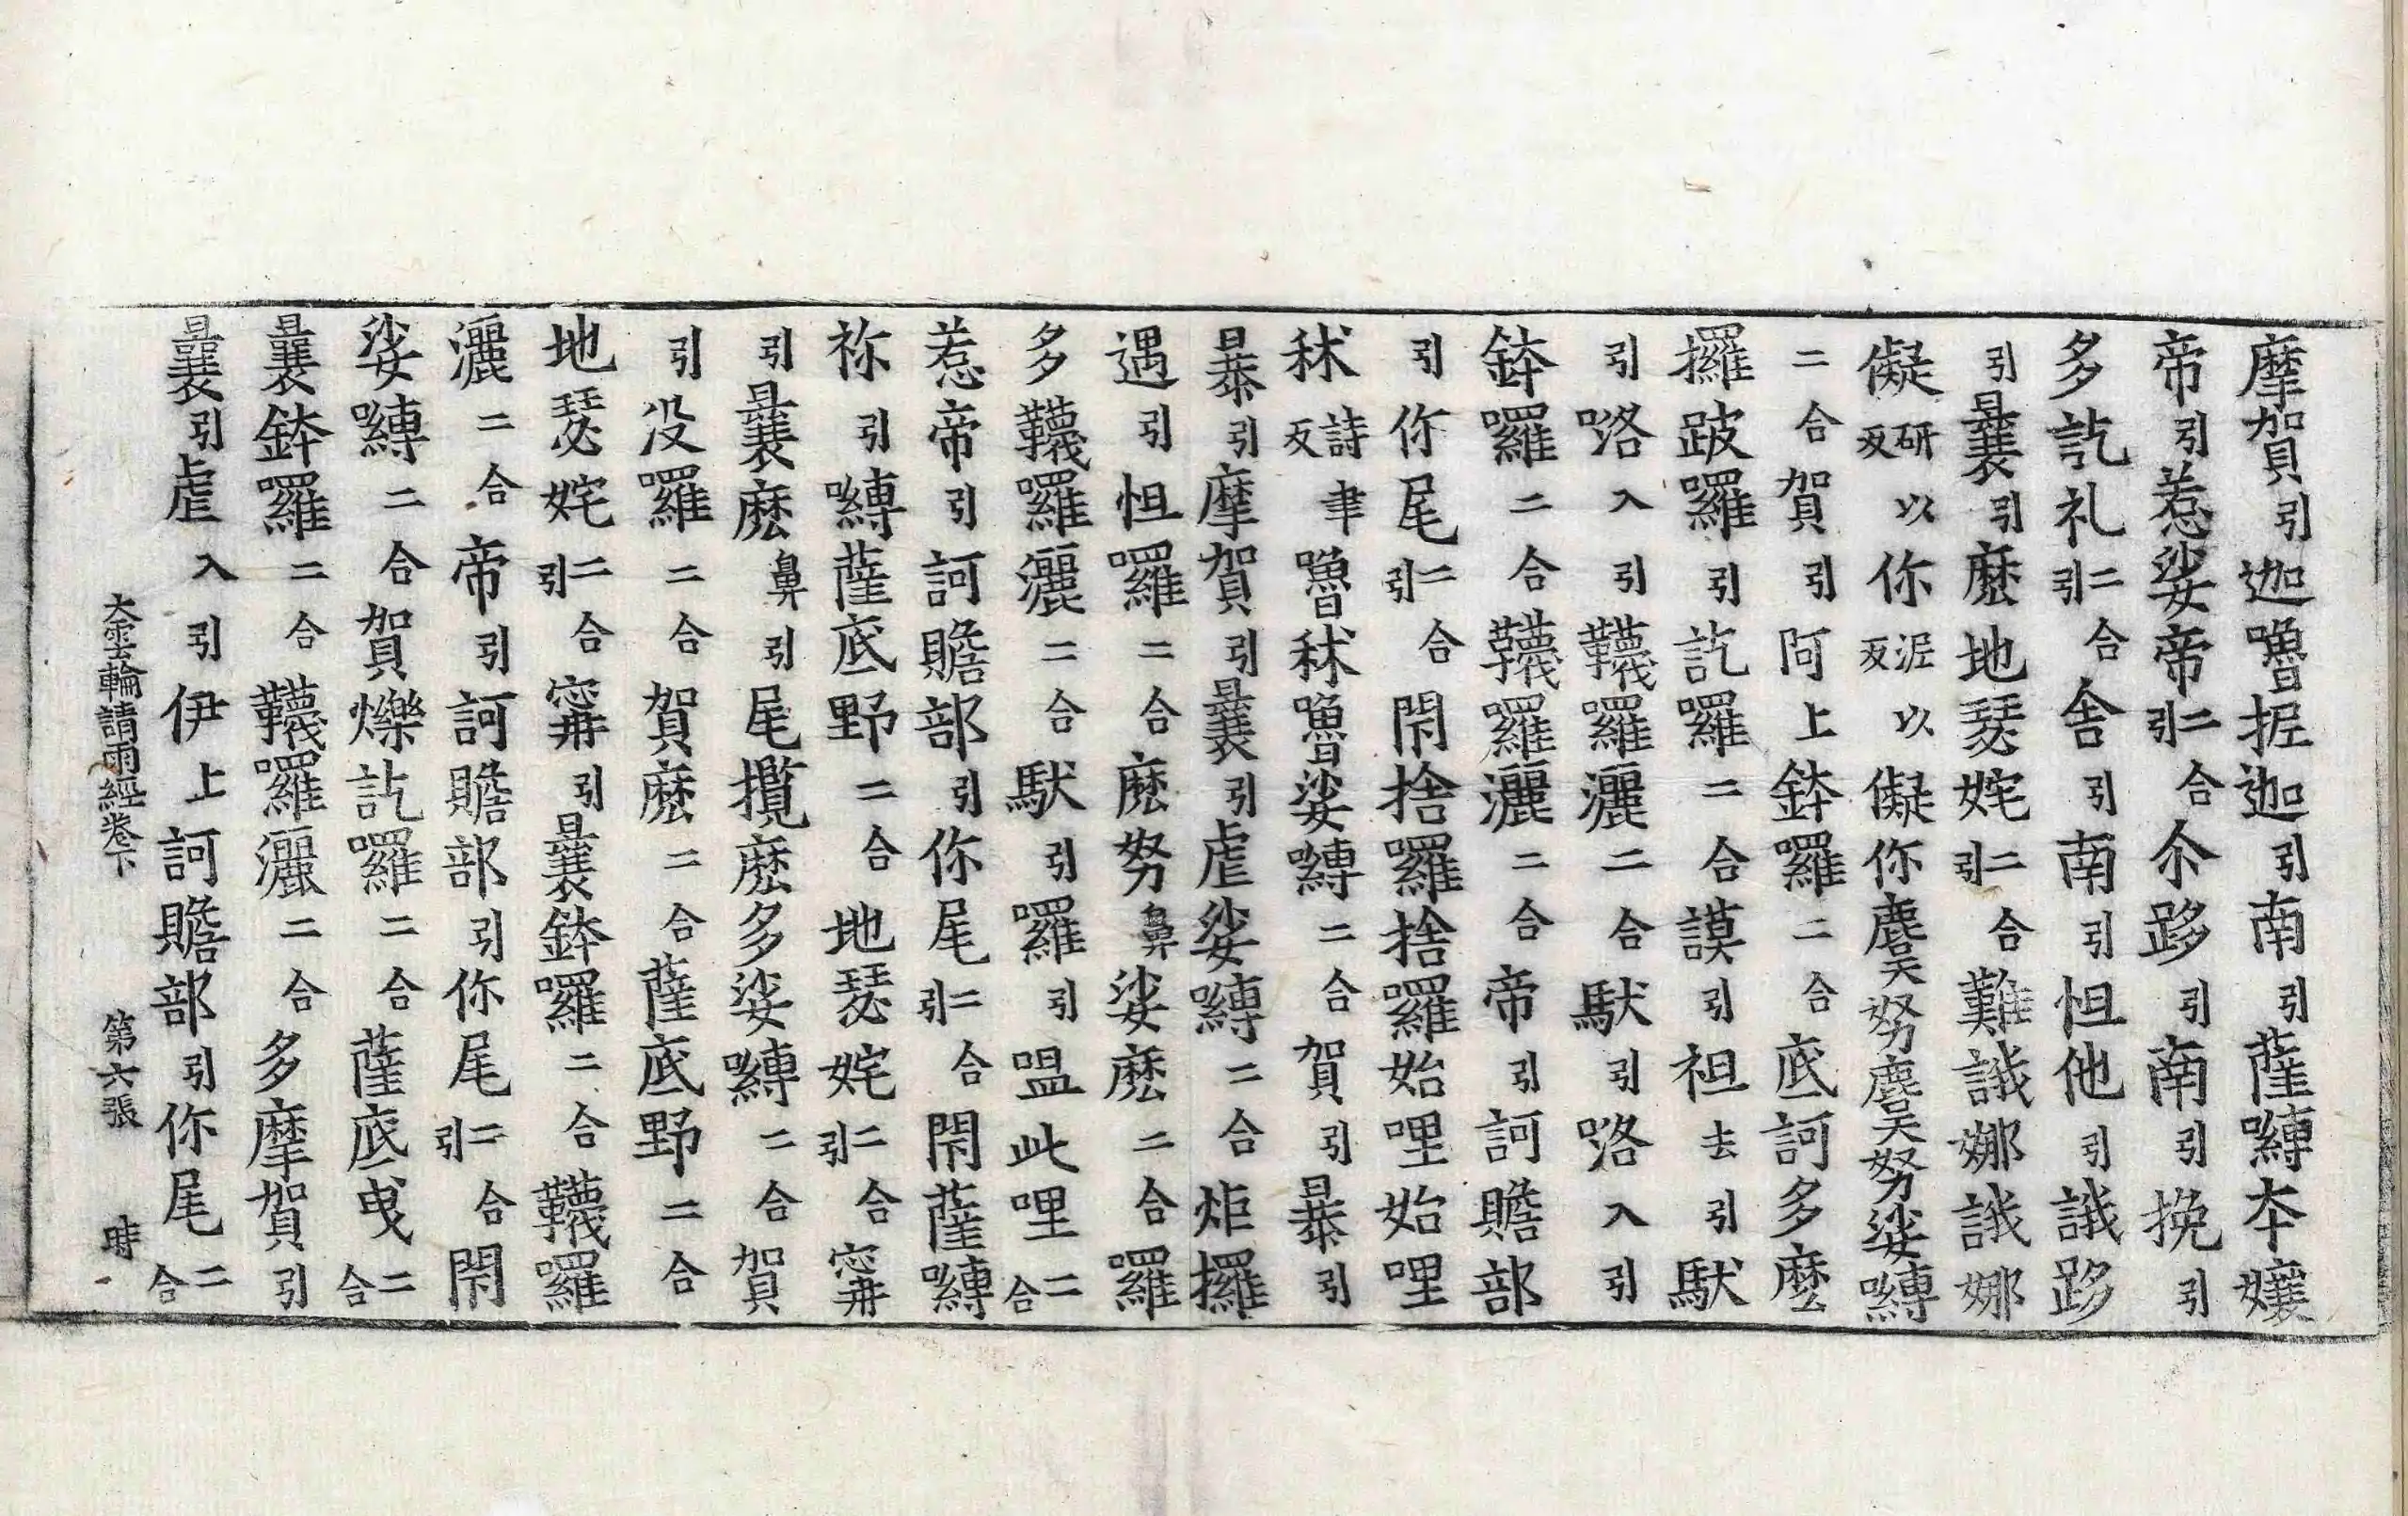 摩賀引迦嚕抳迦引南引薩嚩夲孃
帝引惹娑帝二合引尒跢引南引挽引
多訖礼二合引舍引南引怛他引誐跢
引曩引麽地瑟姹二合引難誐娜誐娜
儗研以反你泥以反儗你麌努麌努娑嚩
二合賀引阿上鉢囉二合底訶多麽
攞跛囉引訖囉二合謨引袒去引馱
引咯入引韈囉灑二合馱引咯入引
鉢囉二合韈囉灑二合帝引訶贍部
引你尾二合引閇捨囉捨囉始哩始哩
秫詩聿反嚕秫嚕娑嚩二合賀引暴引
暴引摩賀引曩引虐娑嚩二合炬攞
遇引怛囉二合麽努鼻娑麽二合囉
多韈囉灑二合馱引囉引嗢此哩二合
惹帝引訶贍部引你尾二合引閇薩嚩
祢引嚩薩底野二合地瑟姹二合引寗
引曩麽鼻引尾攬麽多娑嚩二合賀
引没囉二合賀麽二合薩底野二合
地瑟姹二合引寗引曩鉢囉二合韈囉
灑二合帝引訶贍部引你尾二合引閇
娑嚩二合賀爍訖囉二合薩底曳二合
曩鉢囉二合韈囉灑二合多摩賀引
曩引虐入引伊上訶贍部引你尾二合
大雲輪請雨經卷下 第六張 時